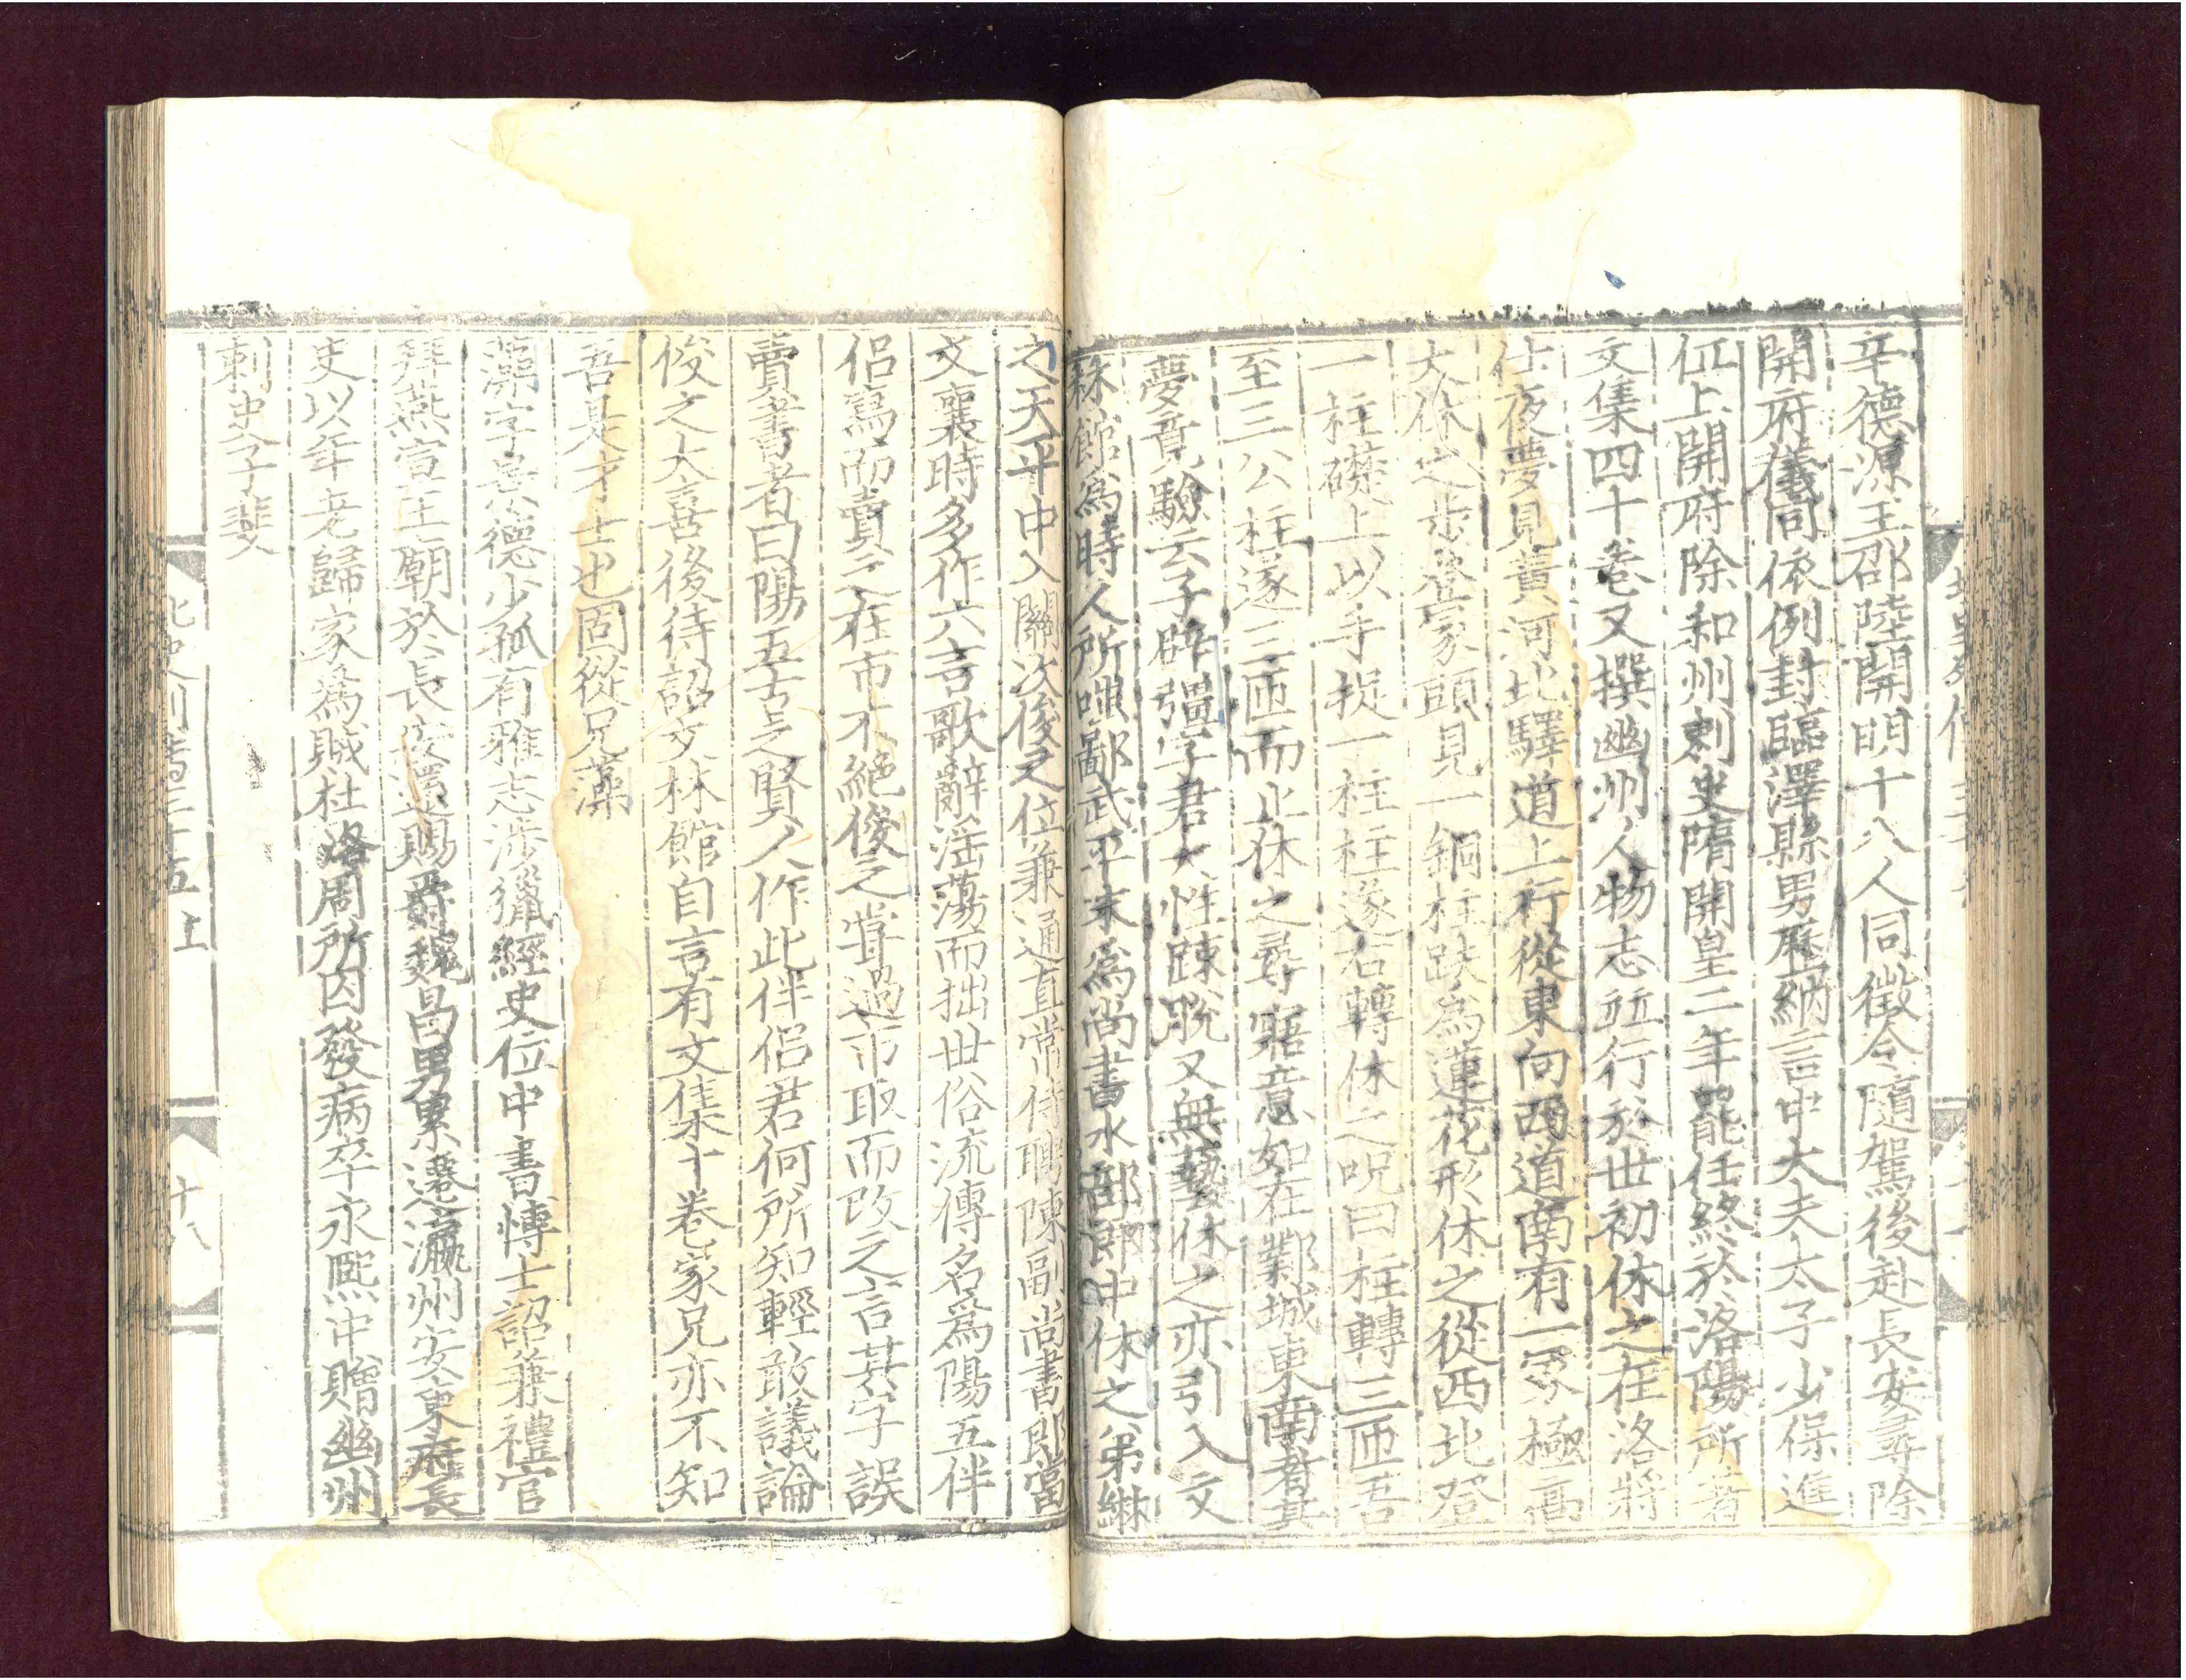 辛德源王邵陸開明十八人同徵令隨駕後赴長安尋除
開府儀同依例封臨澤縣男歷納言中大夫太子少保進
位上開府除和州刺史隋開皇二年罷任終於洛陽所著
文集四十卷又撰幽州人物志並行於世初休之在洛將
仕夜夢見黃河北驛道上行從東向西道南有一冢極高
大休之步登冢頭見一銅柱趺為蓮花形休之從西北登
一柱礎上以手捉一柱柱遂右轉休之呪曰柱轉三匝吾
至三公柱遂三匝而止休之尋寤意如在鄴城東南者其
夢竟驗云子辟彊字君大性踈脫又無藝休之亦引入文
林館為時人所嗤鄙武平末為尚書水部郎中休之弟綝
之天平中入關次俊之位兼通直常侍聘陳副尚書郎當
文襄時多作六言歌辭淫蕩而拙世俗流傳名為陽五伴
侶寫而賣之在市不絕俊之嘗過市取而改之言其字誤
賣書者曰陽五古之賢人作此伴侶君何所知輕敢議論
俊之大喜後待詔文林館自言有文集十卷家兄亦不知
吾是才士也固從兄藻
藻字景德少孤有雅志涉獵經史位中書博士詔兼禮官
拜燕宣王廟於長安還賜爵魏昌男累遷瀛州安東府長
史以年老歸家為賊杜洛周所囚發病卒永熙中贈幽州
刺史子斐
北史列傳三十五上
十八